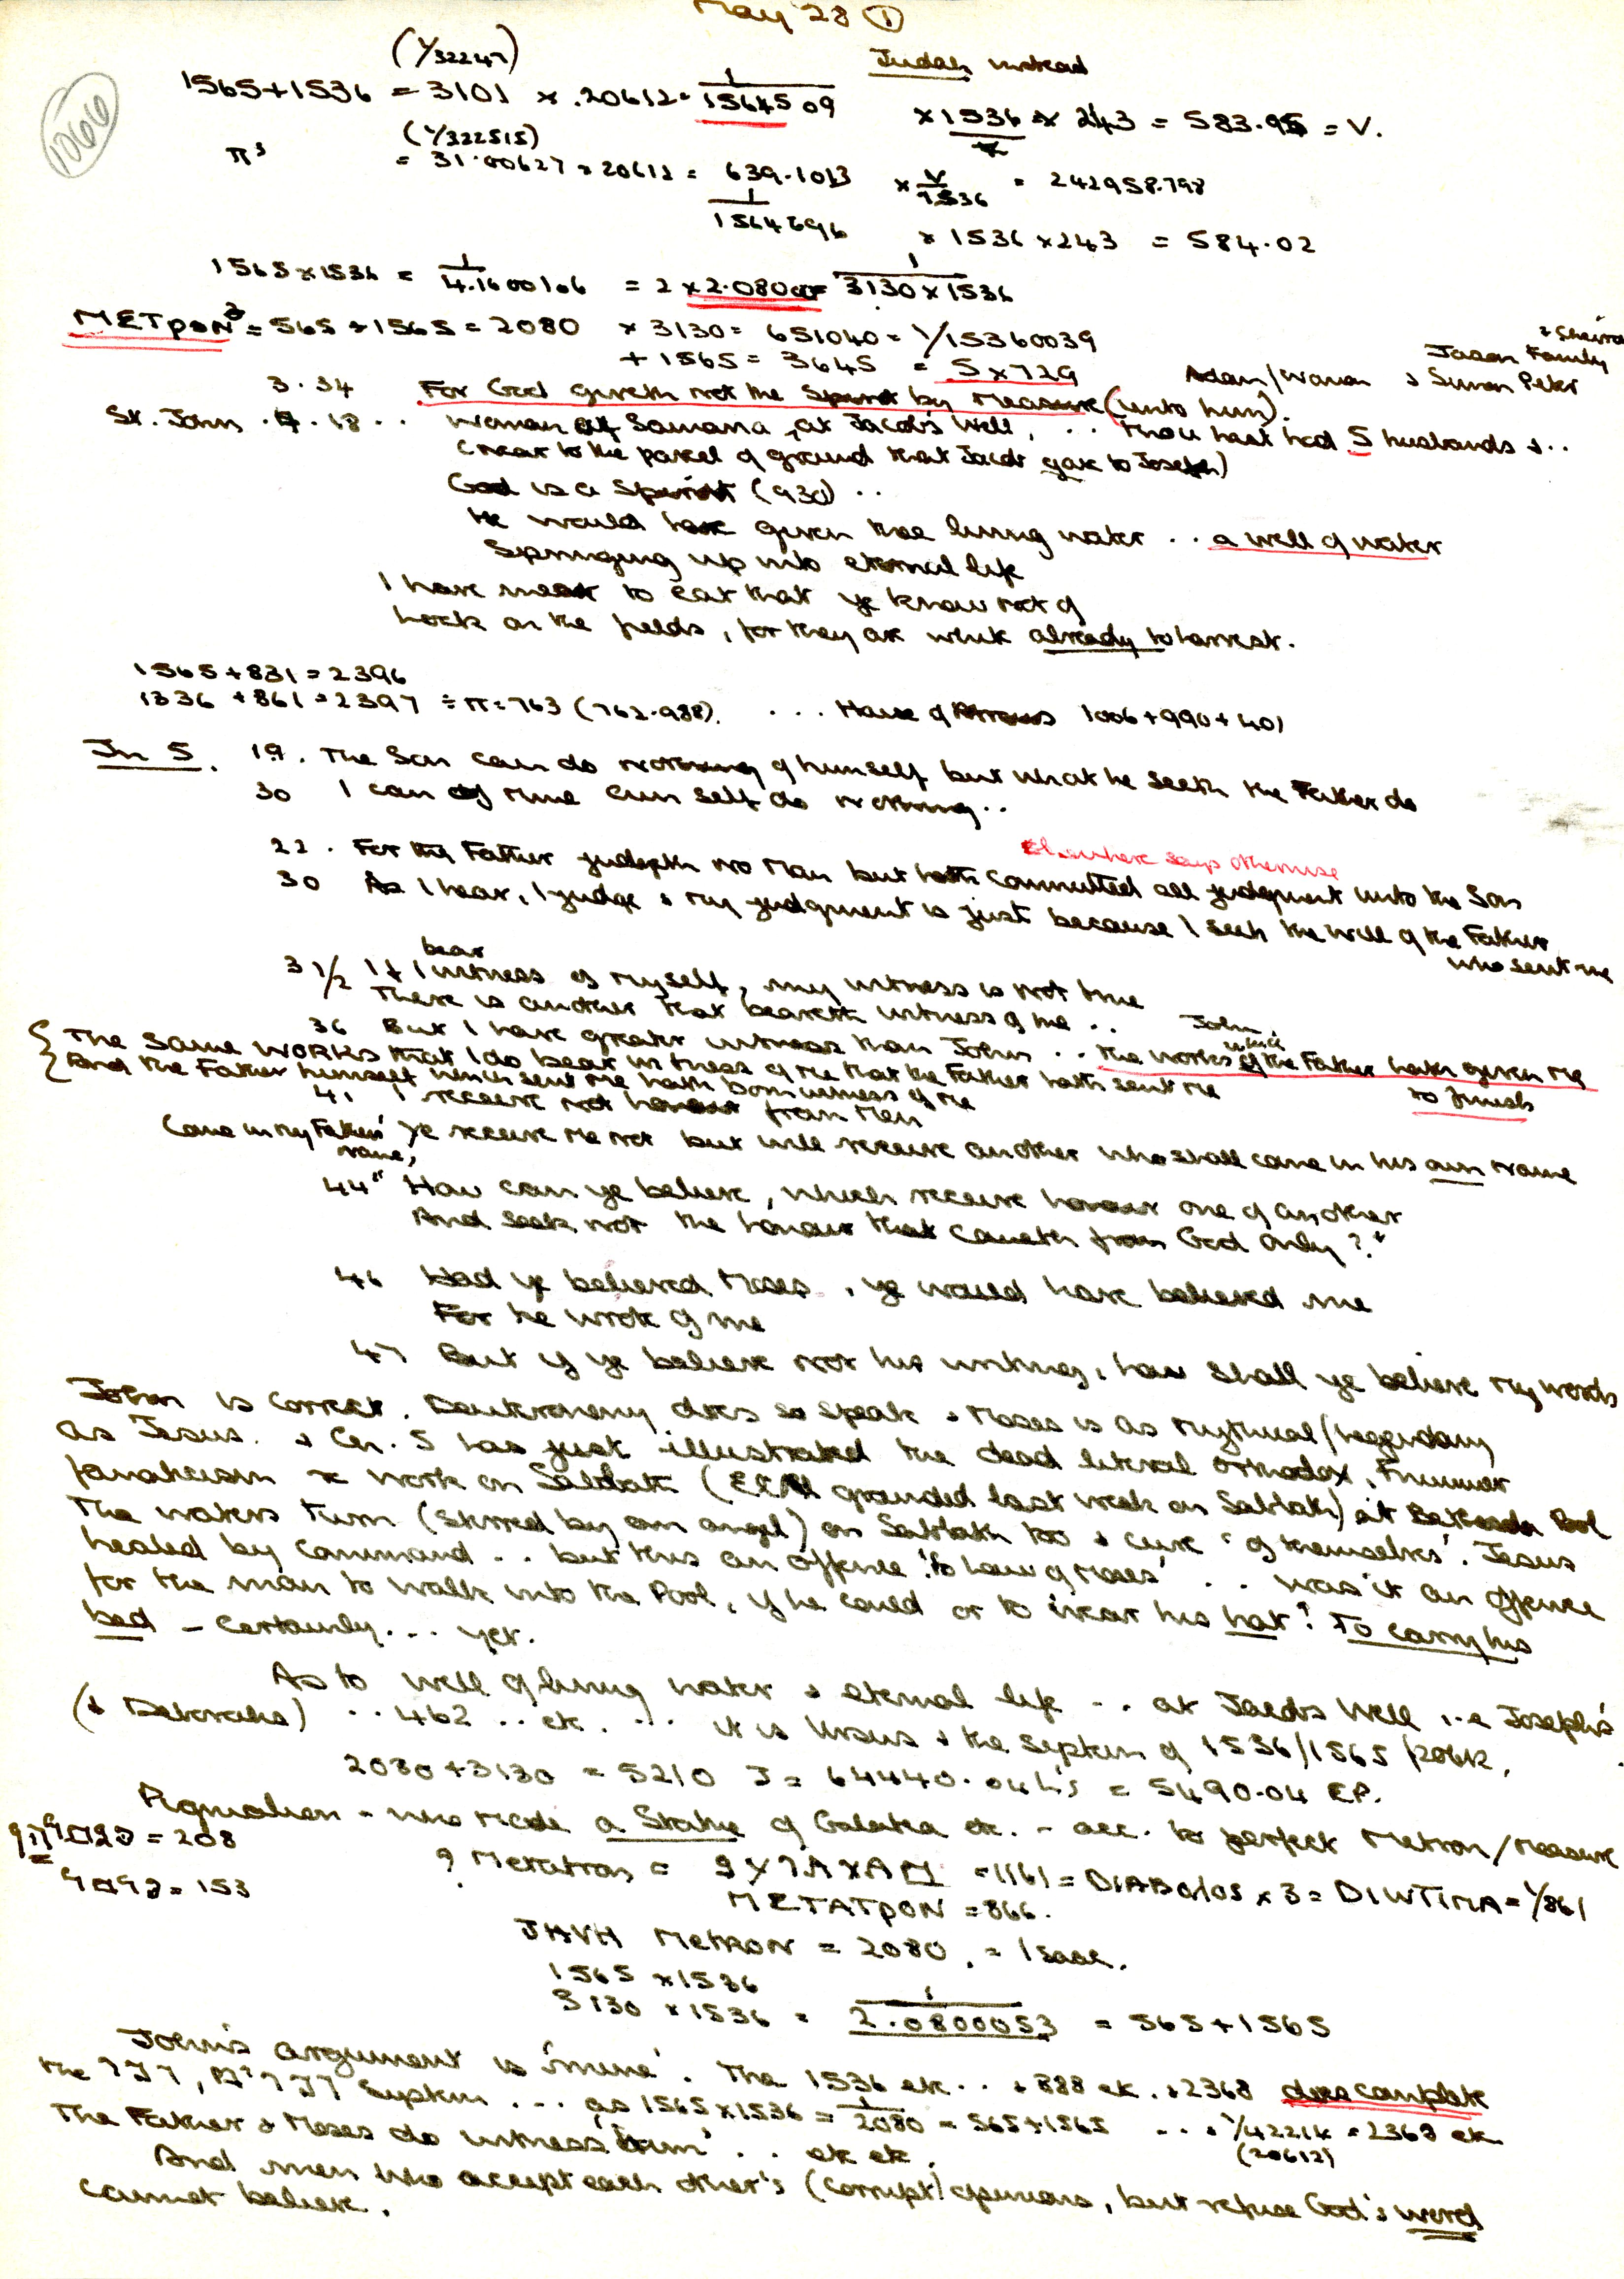 May 28 ①
1066
(1/32247) Judah instead
1565+1536 = 3101 x .20612 = 1/1564509 x 1536 x 243 = 583.95 = V.
(1/322515)
π³ = 31.00627 x 20612 = 639.1013 x V/1536 = 242958.798
1/1564696 x 1536 x 243 = 584.02
1565 x 1536 = 1/4.1600106 = 2 x 2.0800 = 1/3130 x 1536
METρON = 565 + 1565 = 2080 x 3130 = 651040 = 1/15360039
+ 1565 = 3645 = 5 x 729 Adam/Woman & Simon Peter
Jason Family
3.34 For God giveth not the Spirit by Measure (unto him).
St. John . 4 . 18 .. Woman of Samaria, at Jacob's Well, .. Thou hast had 5 husbands & ..
(near to the parcel of ground that Jacob gave to Joseph)
God is a Spirit (930) ..
He would have given thee living water .. a well of water
Springing up into eternal life
I have meat to eat that ye know not of
Look on the fields, for they are white already to harvest.
1565 + 831 = 2396
1536 + 861 = 2397 ÷ π = 763 (762.988). ... House of 1006 + 990 + 401
Jn 5. 19. The Son can do nothing of himself but what he seeth the Father do
30 I can of mine own self do nothing ..
Elsewhere says otherwise
22. For the Father judgeth no Man but hath committed all judgment unto the Son
30 As I hear, I judge & my judgment is just because I seek the will of the Father
who sent me
31/2 If I bear witness of myself, my witness is not true
There is another that beareth witness of me .. John.
36 But I have greater witness than John .. the works which the Father hath given me
to finish
The same WORKS that I do bear witness of me that the Father hath sent me
And the Father himself which sent me hath born witness of me
41 I receive not honour from Men
Come in my Father's name, Ye receive me not but will receive another who shall come in his own name
44 "How can ye believe, which receive honour one of another
And seek not the honour that cometh from God only?"
46 Had ye believed Moses, ye would have believed me
For he wrote of me
47 But if ye believe not his writings, how shall ye believe my words
John is correct. Deuteronomy does so speak & Moses is as mythical/legendary
as Jesus. & Ch. 5 has just illustrated the dead literal orthodox, Frummer
fanaticism re work on Sabbath (El Al grounded last week on Sabbath) at Bethesda Pool
The waters turn (stirred by an angel) on Sabbath too & cure 'of themselves'. Jesus
healed by command .. but this an offence 'to Law of Moses' .. was it an offence
for the man to walk into the Pool, if he could or to wear his hat? To carry his
bed – certainly ... yet.
As to well of living water & eternal life .. at Jacob's Well i.e Joseph's
(& Deborahs) .. 462 .. etc. ... it is Ursus & the Septem of 1536/1565/206k.
2080 + 3130 = 5210 J = 64440.04 L's = 5490.04 EP.
Pigmalion – who Made a Statue of Galatea etc. – acc. to perfect Metron/Measure
= 208
= 153
? Metatron = = 1161 = DIABOLOS x 3 = DIWTIMA = 1/861
METATρON = 866.
JHVH METRON = 2080, = Isaac.
1565 x 1536
3130 x 1536 = 1/2.0800053 = 565 + 1565
John's argument is 'mine'. The 1536 etc .. & 888 etc. & 2368 does complete
the System ... as 1565 x 1536 = 1/2080 = 565 + 1565 ... & 1/4221k = 2368 etc.
(20612)
The Father & Moses do witness 'him' .. etc etc.
And men who accept each other's (corrupt) opinions, but refuse God's word
cannot believe.